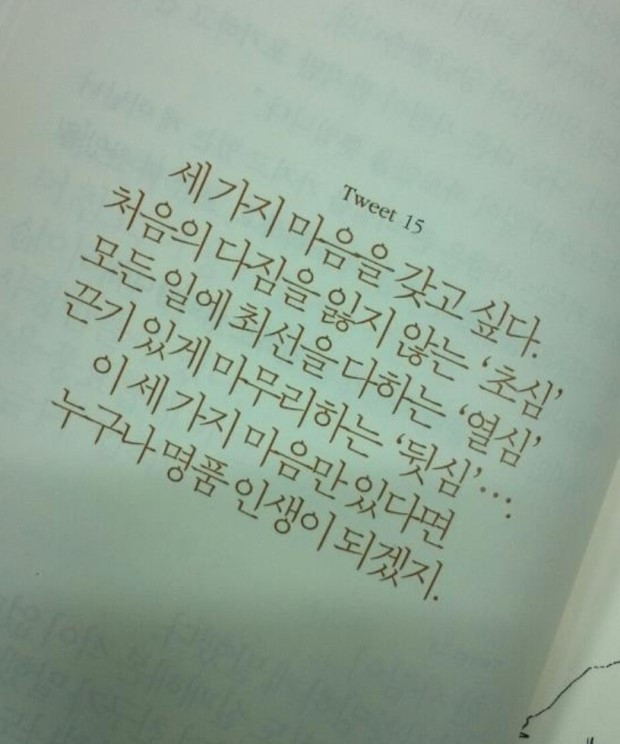 Tweet 15
세 가지 마음을 갖고 싶다.
처음의 다짐을 잃지 않는 ‘초심’
모든 일에 최선을 다하는 ‘열심’
끈기 있게 마무리하는 ‘뒷심’….
이 세 가지 마음만 있다면
누구나 명품 인생이 되겠지.